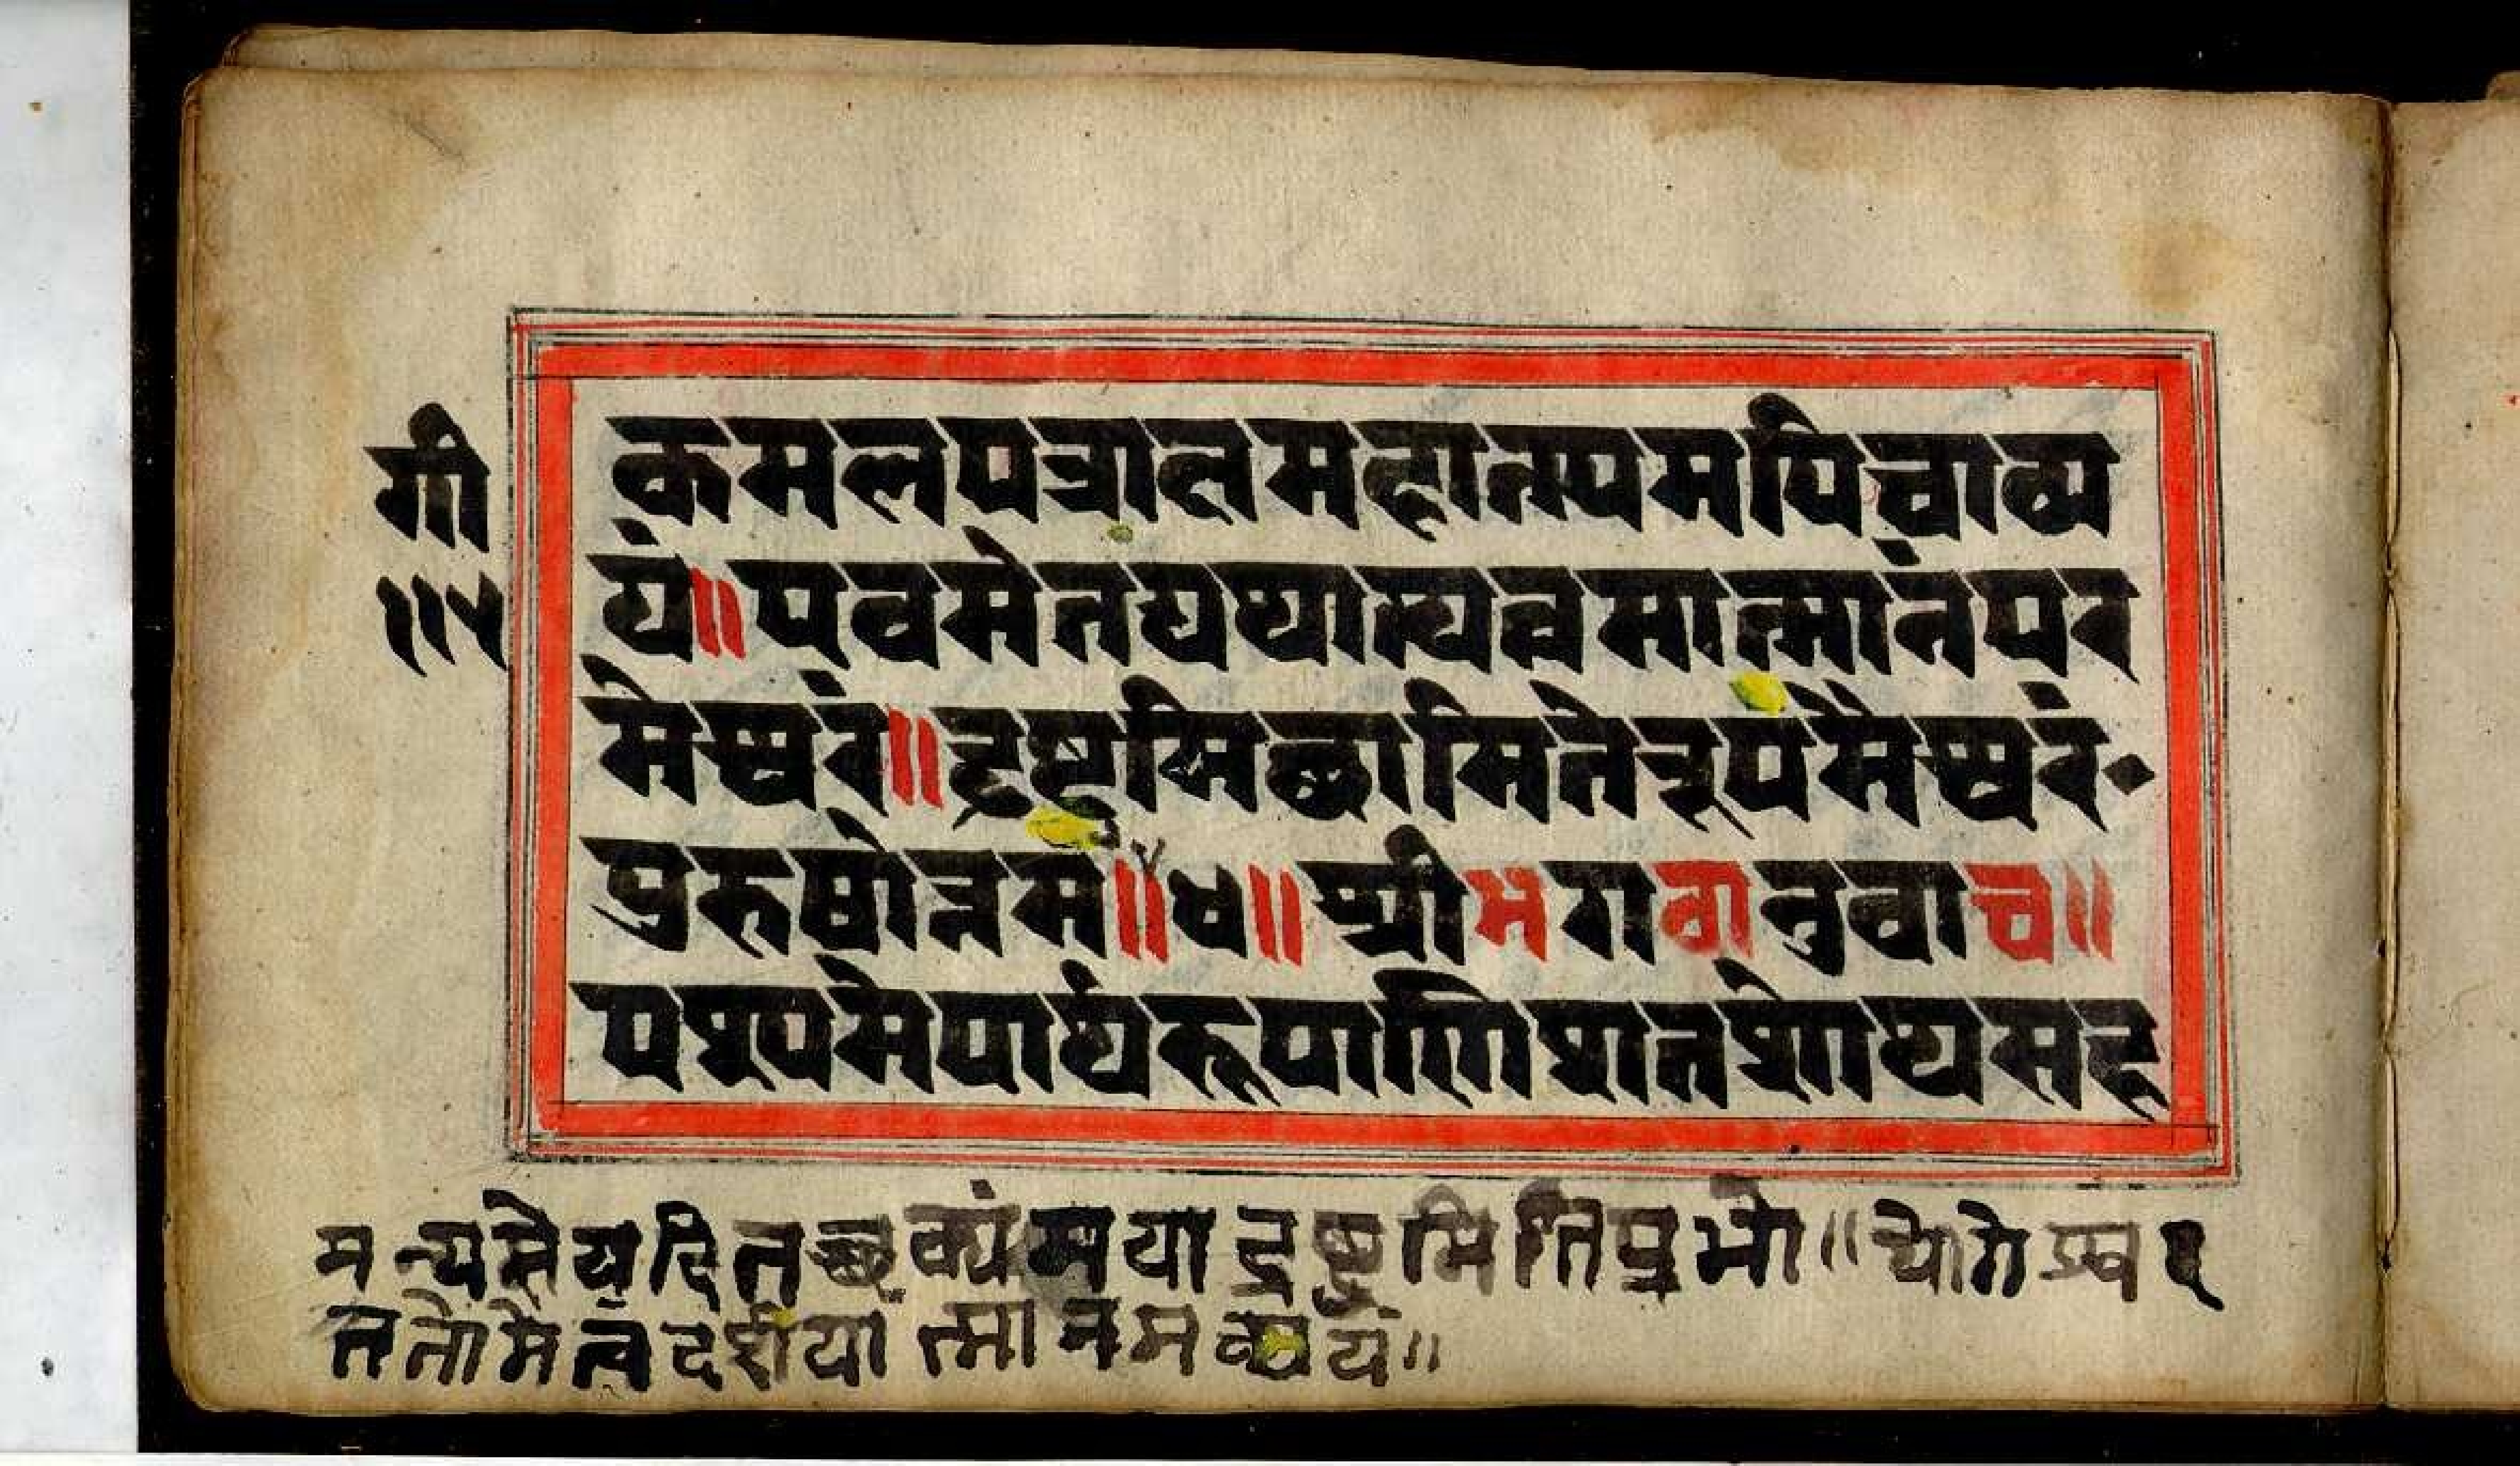 गी
॥५
कमलपत्राक्षमहात्म्यमपिचाव्य
यं॥एवमेतद्यथात्थत्वमात्मांनपर
मेश्वरं॥द्रष्टुमिछामितेरूपमैश्वरं॰
पुरुषोत्तम॥४॥श्रीभगवानुवाच॥
पश्यमेपार्थरूपाणिशतशोथसह
मन्यसेयदितच्छक्यंमयाद्रष्टुमितिप्रभो॥योगेश्वर
ततोमेत्वंदर्शयात्मानमव्ययं॥